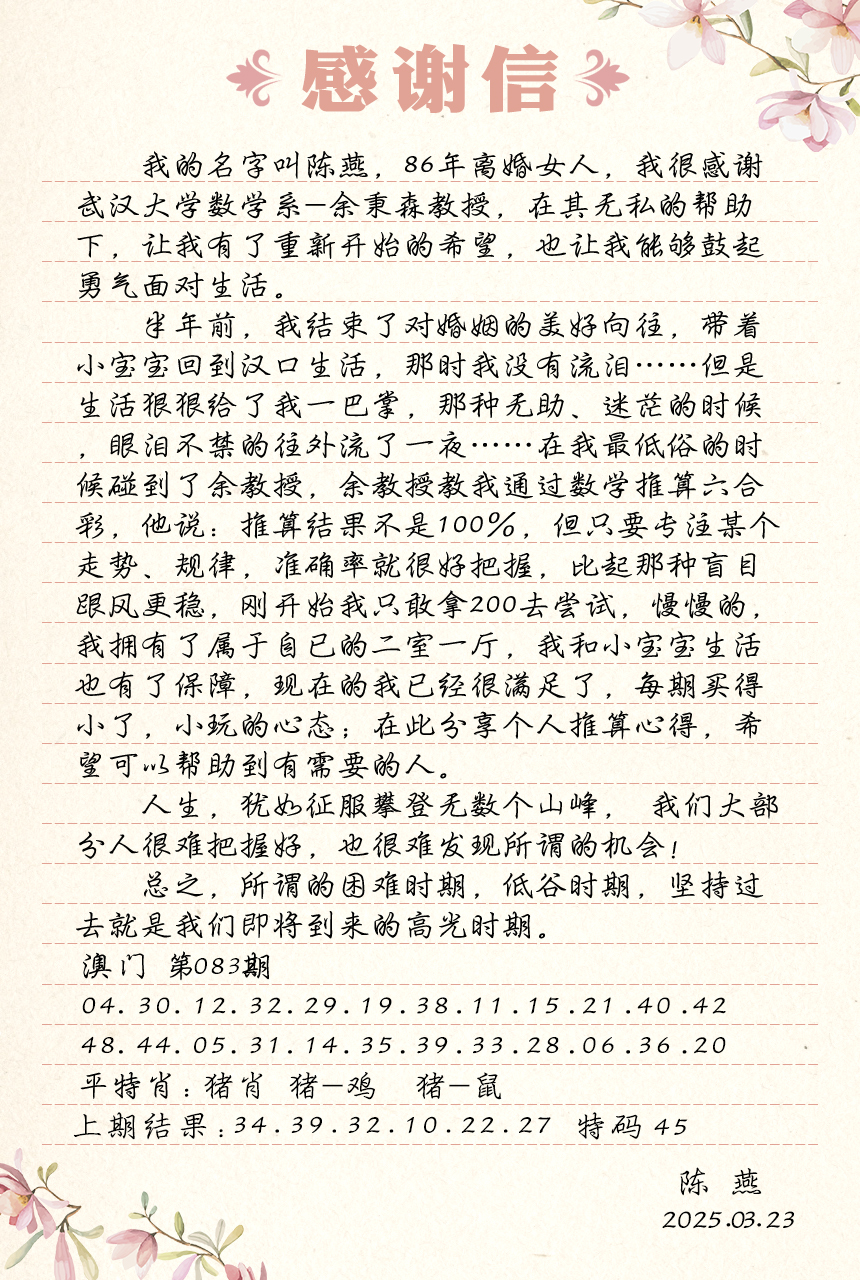 感谢信
我的名字叫陈燕，86年离婚女人，我很感谢
武汉大学数学系—余秉森教授，在其无私的帮助
下，让我有了重新开始的希望，也让我能够鼓起
勇气面对生活。
半年前，我结束了对婚姻的美好向往，带着
小宝宝回到汉口生活，那时我没有流泪……但是
生活狠狠给了我一巴掌，那种无助、迷茫的时候
，眼泪不禁的往外流了一夜……在我最低俗的时
候碰到了余教授，余教授教我通过数学推算六合
彩，他说：推算结果不是100%，但只要专注某个
走势、规律，准确率就很好把握，比起那种盲目
跟风更稳，刚开始我只敢拿200去尝试，慢慢的，
我拥有了属于自已的二室一厅，我和小宝宝生活
也有了保障，现在的我已经很满足了，每期买得
小了，小玩的心态；在此分享个人推算心得，希
望可以帮助到有需要的人。
人生，犹如征服攀登无数个山峰， 我们大部
分人很难把握好，也很难发现所谓的机会！
总之，所谓的困难时期，低谷时期，坚持过
去就是我们即将到来的高光时期。
澳门 第083期
04.30.12.32.29.19.38.11.15.21.40.42
48.44.05.31.14.35.39.33.28.06.36.20
平特肖：猪肖 猪—鸡 猪—鼠
上期结果：34.39.32.10.22.27 特码 45
陈 燕
2025.03.23